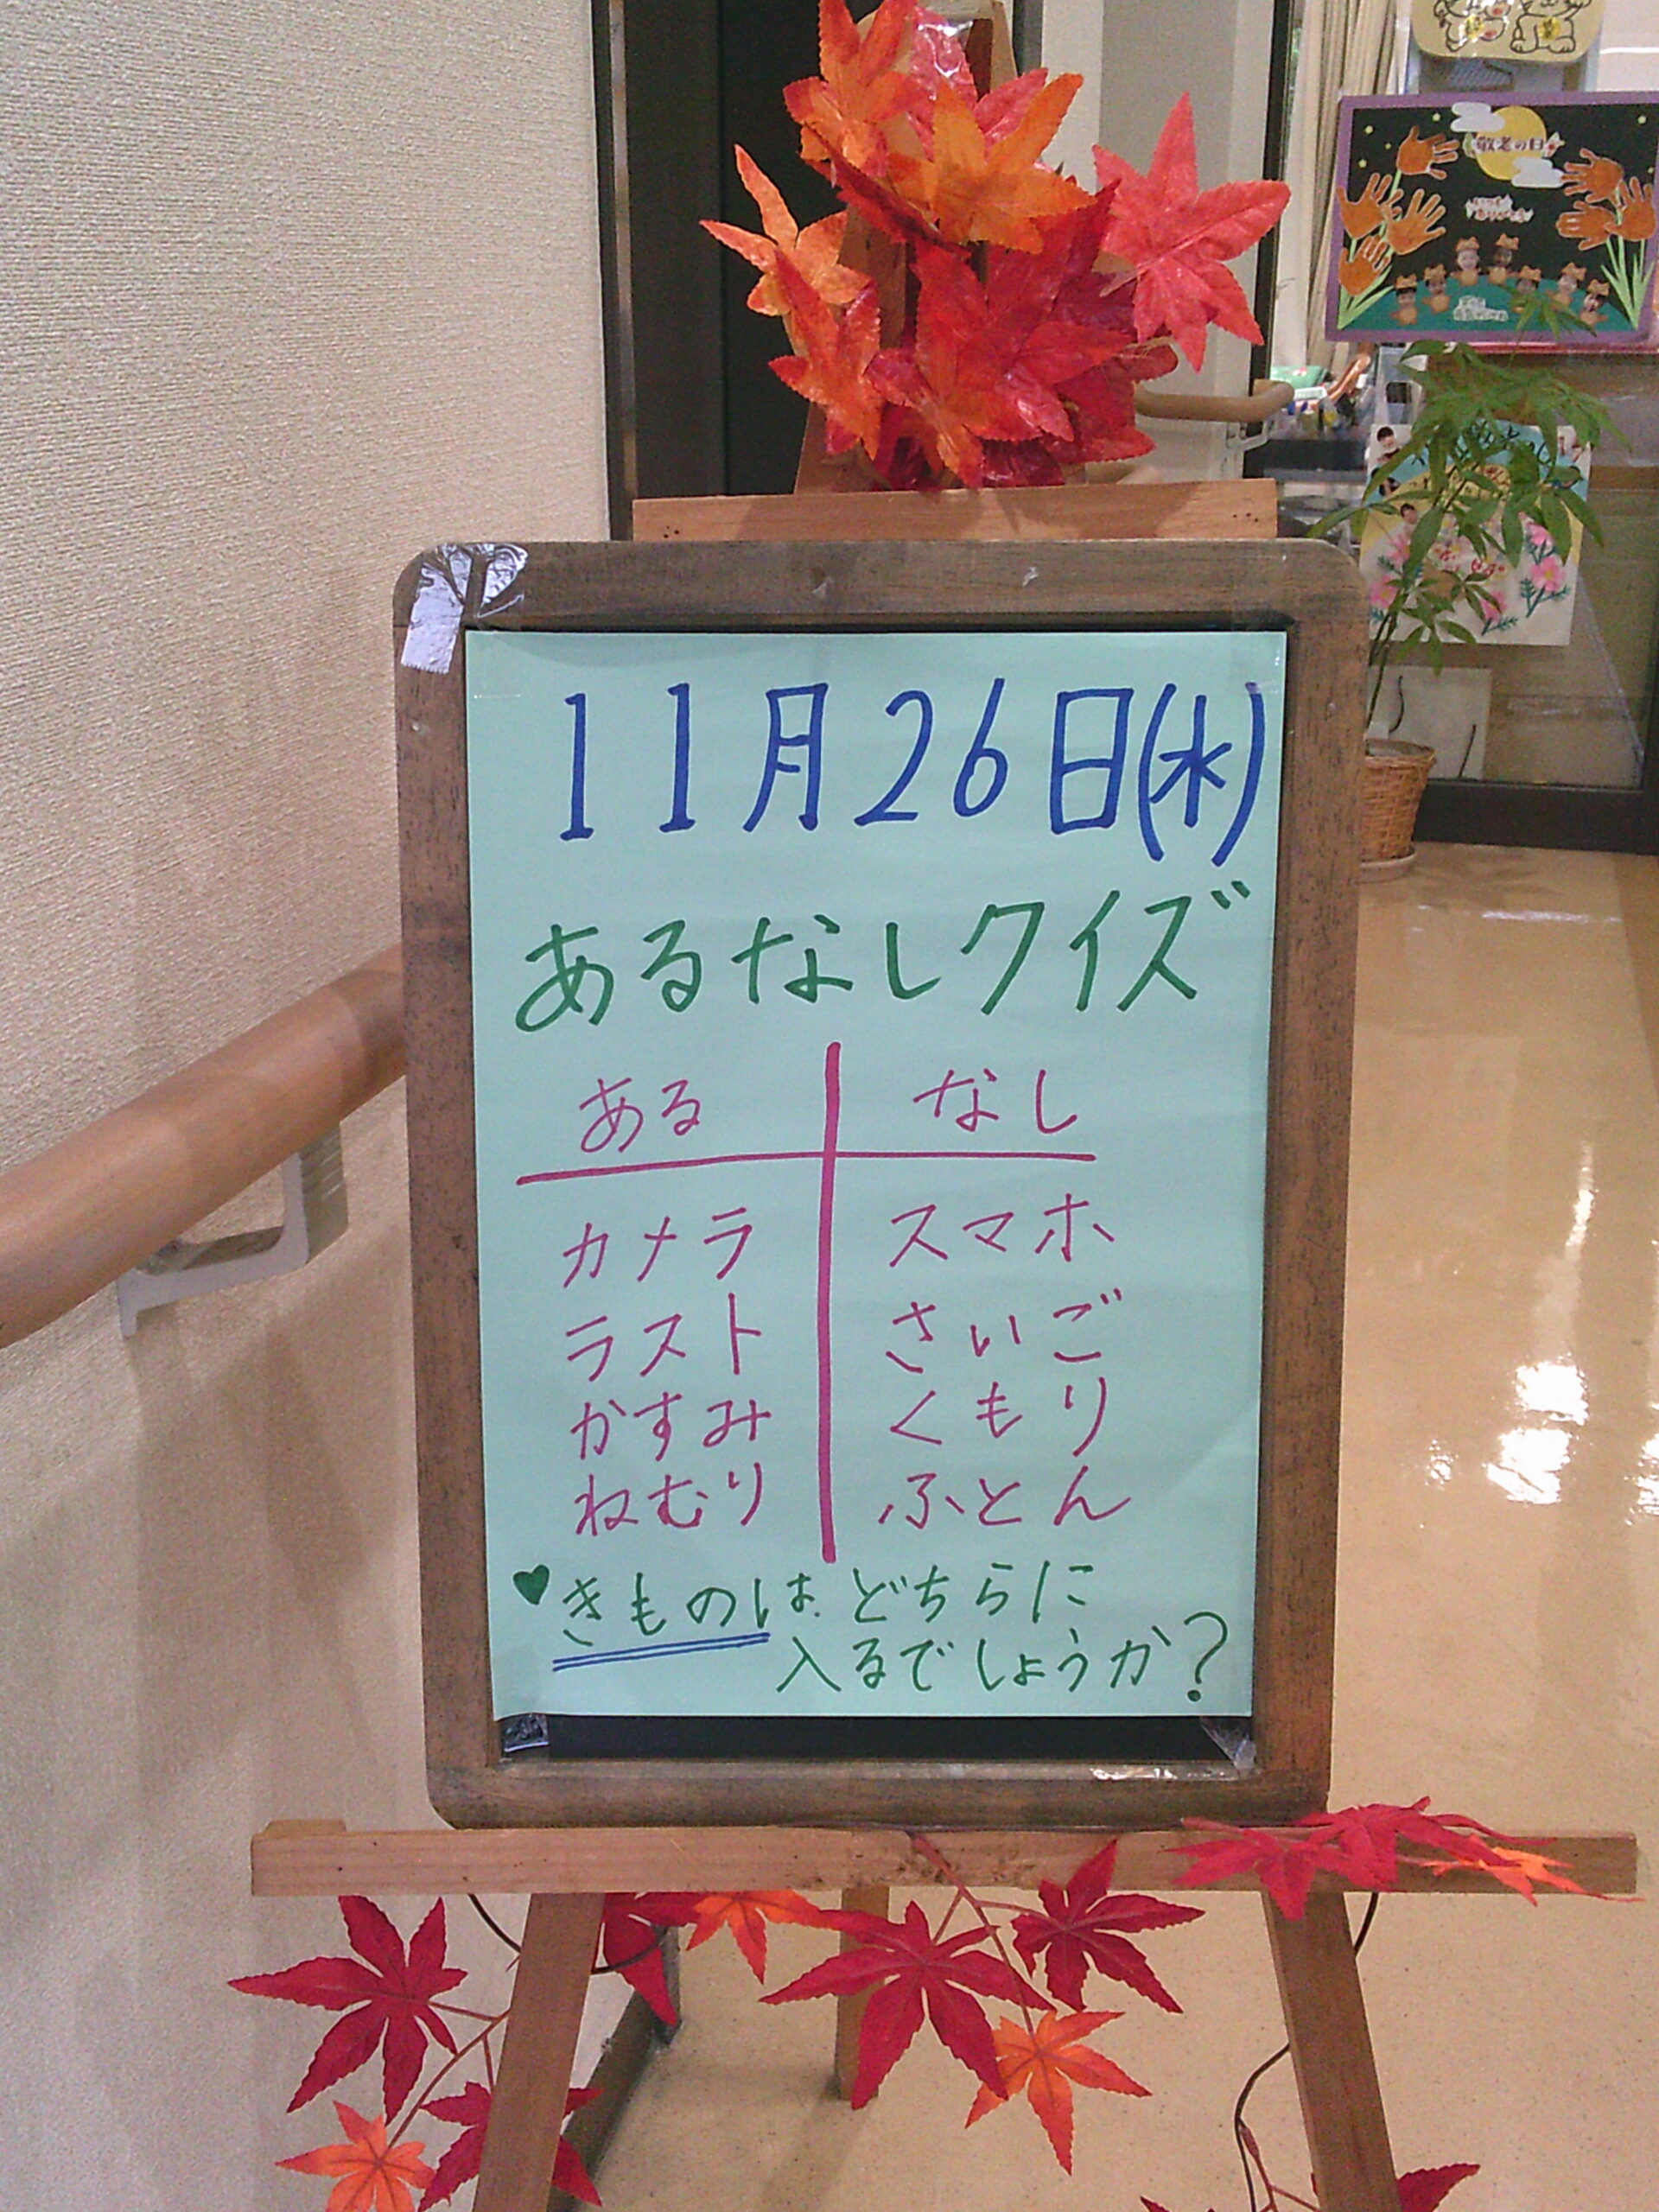 敬老の日
11月26日(水)
あるなしクイズ
ある なし
カメラ スマホ
ラスト さいご
かすみ くもり
ねむり ふとん
♥きものは どちらに
入るでしょうか？